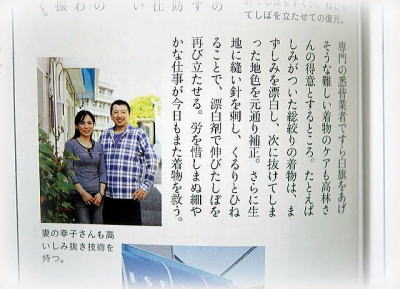 てしぼを立たせての復元。
専門の悉皆業者ですら白旗をあげ
そうな難しい着物のケアも高林さ
んの得意とするところ。たとえば
しみがついた総絞りの着物は、ま
ずしみを漂白し、次に抜けてしま
った地色を元通り補正。さらに生
地に縫い針を刺し、くるりとひね
ることで、漂白剤で伸びたしぼを
再び立たせる。労を惜しまぬ細や
かな仕事が今日もまた着物を救う。
妻の幸子さんも高
いしみ抜き技術を
持つ。